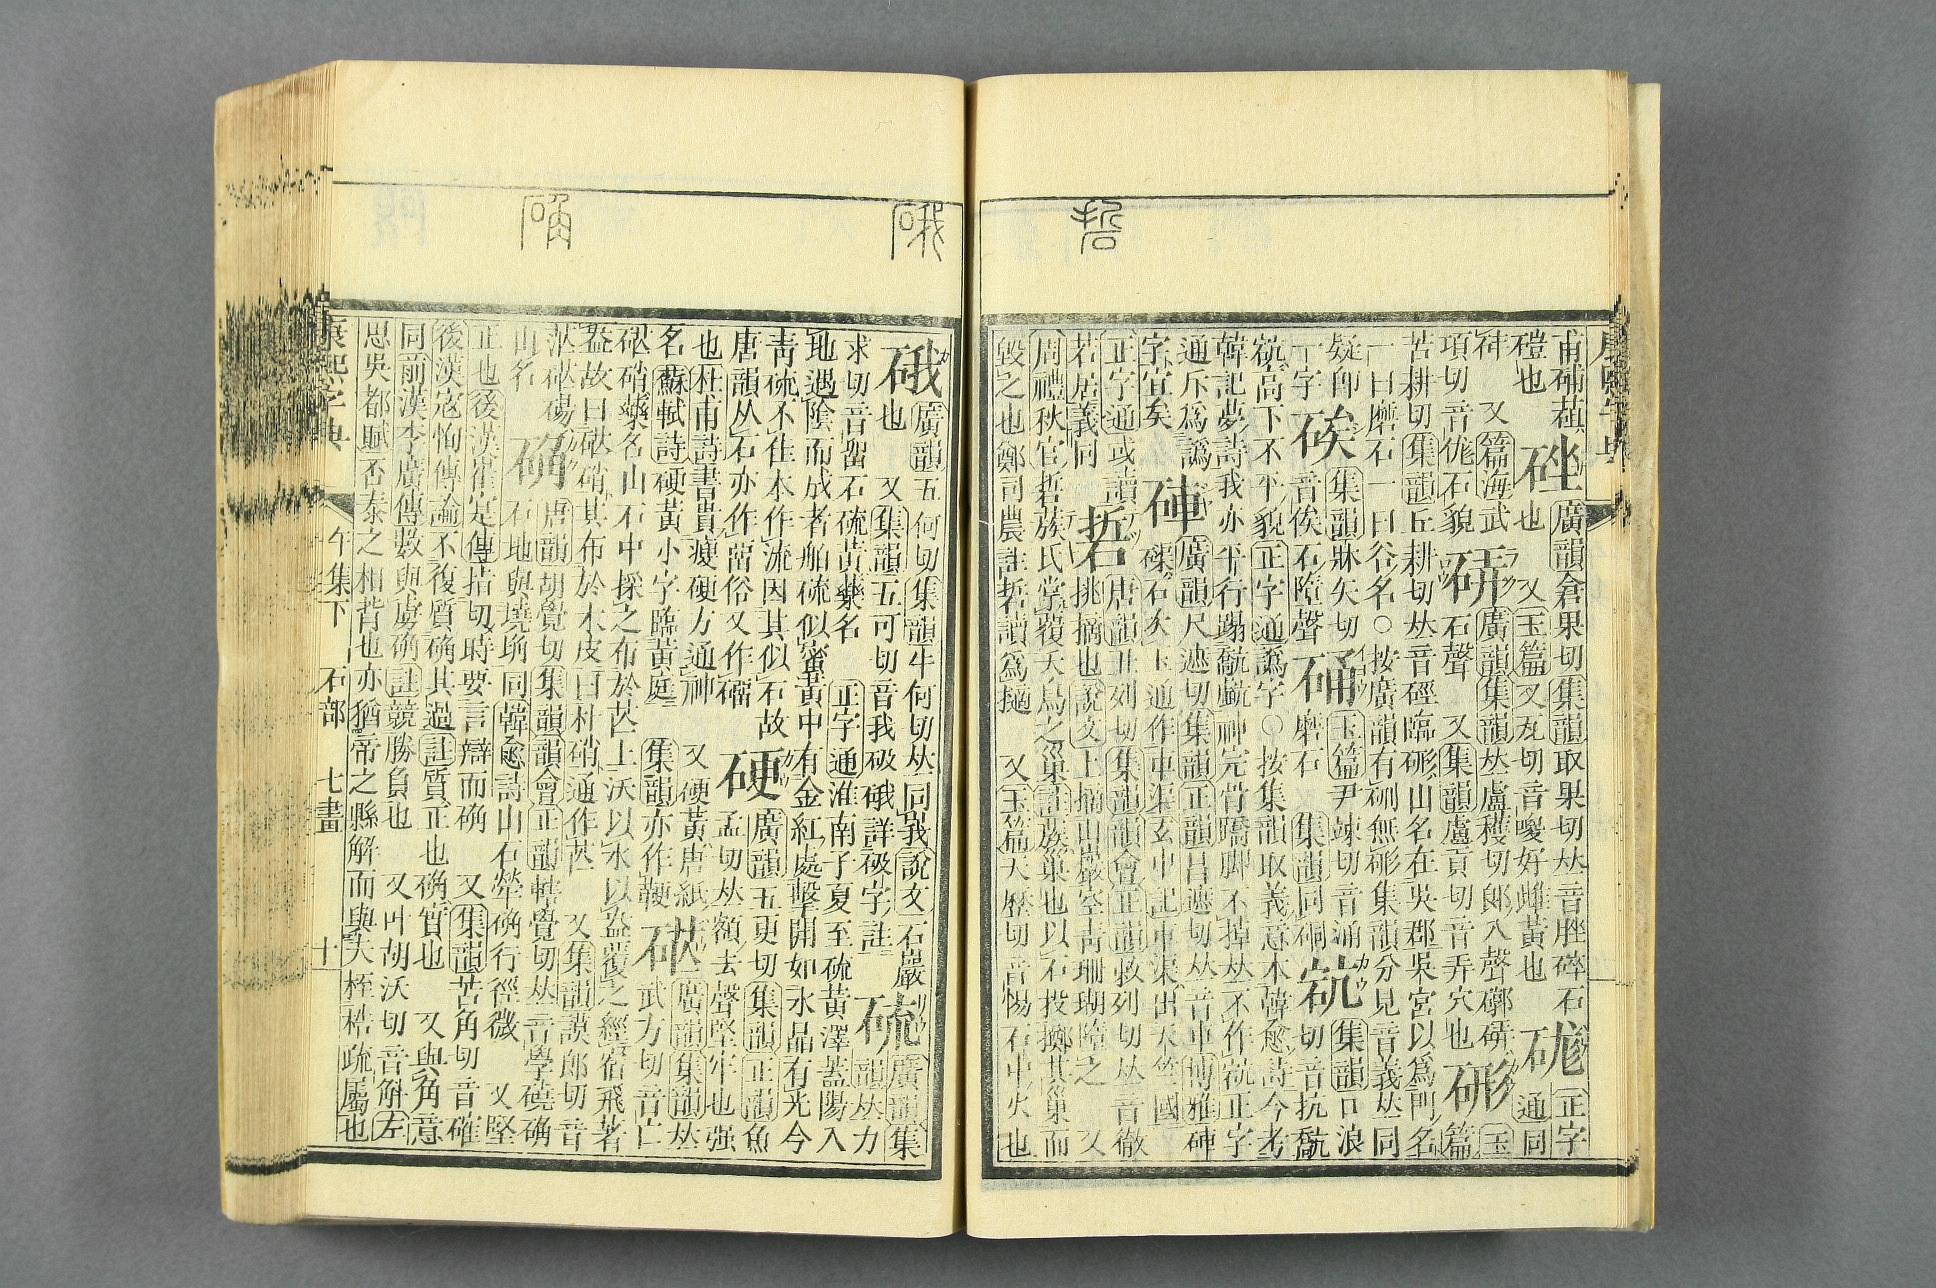 硩
甫硴蓲
磑也
硰
廣韻倉果切集韻取果切𠀤音脞碎石
也 又玉篇又瓦切音㕙好雌黃也
硥
正字
通同
硦 又篇海武
項切音㟌石貌
硑
廣韻集韻𠀤盧穫切郎入聲
石聲 又集韻盧貢切音弄穴也
硟
玉
篇
苦耕切集韻丘耕切𠀤音硜臨硎山名在吳郡吳宮以爲門名
一曰磨石一曰谷名○按廣韻有硎無硎集韻分見音義𠀤同
疑卽
一字
𥑻
集韻牀矢切
音俟石墮聲
硧
玉篇尹竦切音涌
磨石 集韻同硐
集韻口浪
切音抗
高下不平貌正字通譌字○按集韻取義意本韓愈詩今考
韓記夢詩我亦平行蹋
神完骨蹻脚不掉𠀤不作 正字
通斥爲譌
字宜矣
硨
廣韻尺遮切集韻正韻昌遮切𠀤音車博雅硨
磲石矣玉通作車渠玄中記車渠出天竺國
正字通或讀
若居義同
硩
唐韻丑列切集韻韻會正韻敕列切𠀤音徹
挑摘也說文上摘山巖空靑珊瑚隋之 又
周禮秋官硩蔟氏掌覆夭鳥之巢註蔟巢也以石投擲其巢而
毀之也鄭司農註硩讀爲擿 又玉篇天歷切音惕石中火也
硧
硪
硪
廣韻五何切集韻牛何切𠀤同義說文石巖
也 又集韻五可切音我硪硪詳硪字註
硫
廣韻集
韻𠀤力
求切音畱石硫黃藥名 正字通淮南子夏至硫黃澤葢陽入
地遇陰而成者舶硫似蜜黃中有金紅處擊開如水晶有光今
靑硫不佳本作流因其似石故
唐韻从石亦作㽞俗又作磂
硬
廣韻五更切集韻正韻魚
孟切𠀤額去聲堅牢也强
也杜甫詩書貴瘦硬方通神 又硬黃唐紙
名蘇軾詩硬黃小字臨黃庭 集韻亦作鞕
硭
廣韻集韻𠀤
武方切音亡
硭硝藥名山石中採之布於苫上沃以水以盆覆之經宿飛著
盆故曰硭硝其布於木皮曰朴硝通作芒 又集韻謨郎切音
茫硭碭
山名
确
唐韻胡覺切集韻韻會正韻轄覺切𠀤音學磽确
石地與墝埆同韓愈詩山石犖确行徑微 又堅
正也後漢崔寔傳指切時要言辯而确 又集韻苦角切音確
後漢寇恂傳論不復質确其過註質正也确實也 又與角意
同前漢李廣傳數與虜确註競勝負也 又叶胡沃切音斛左
思吳都賦否泰之相背也亦猶帝之縣解而與夫桎梏疏屬也
康熙字典
午集下 石部 七畫 十